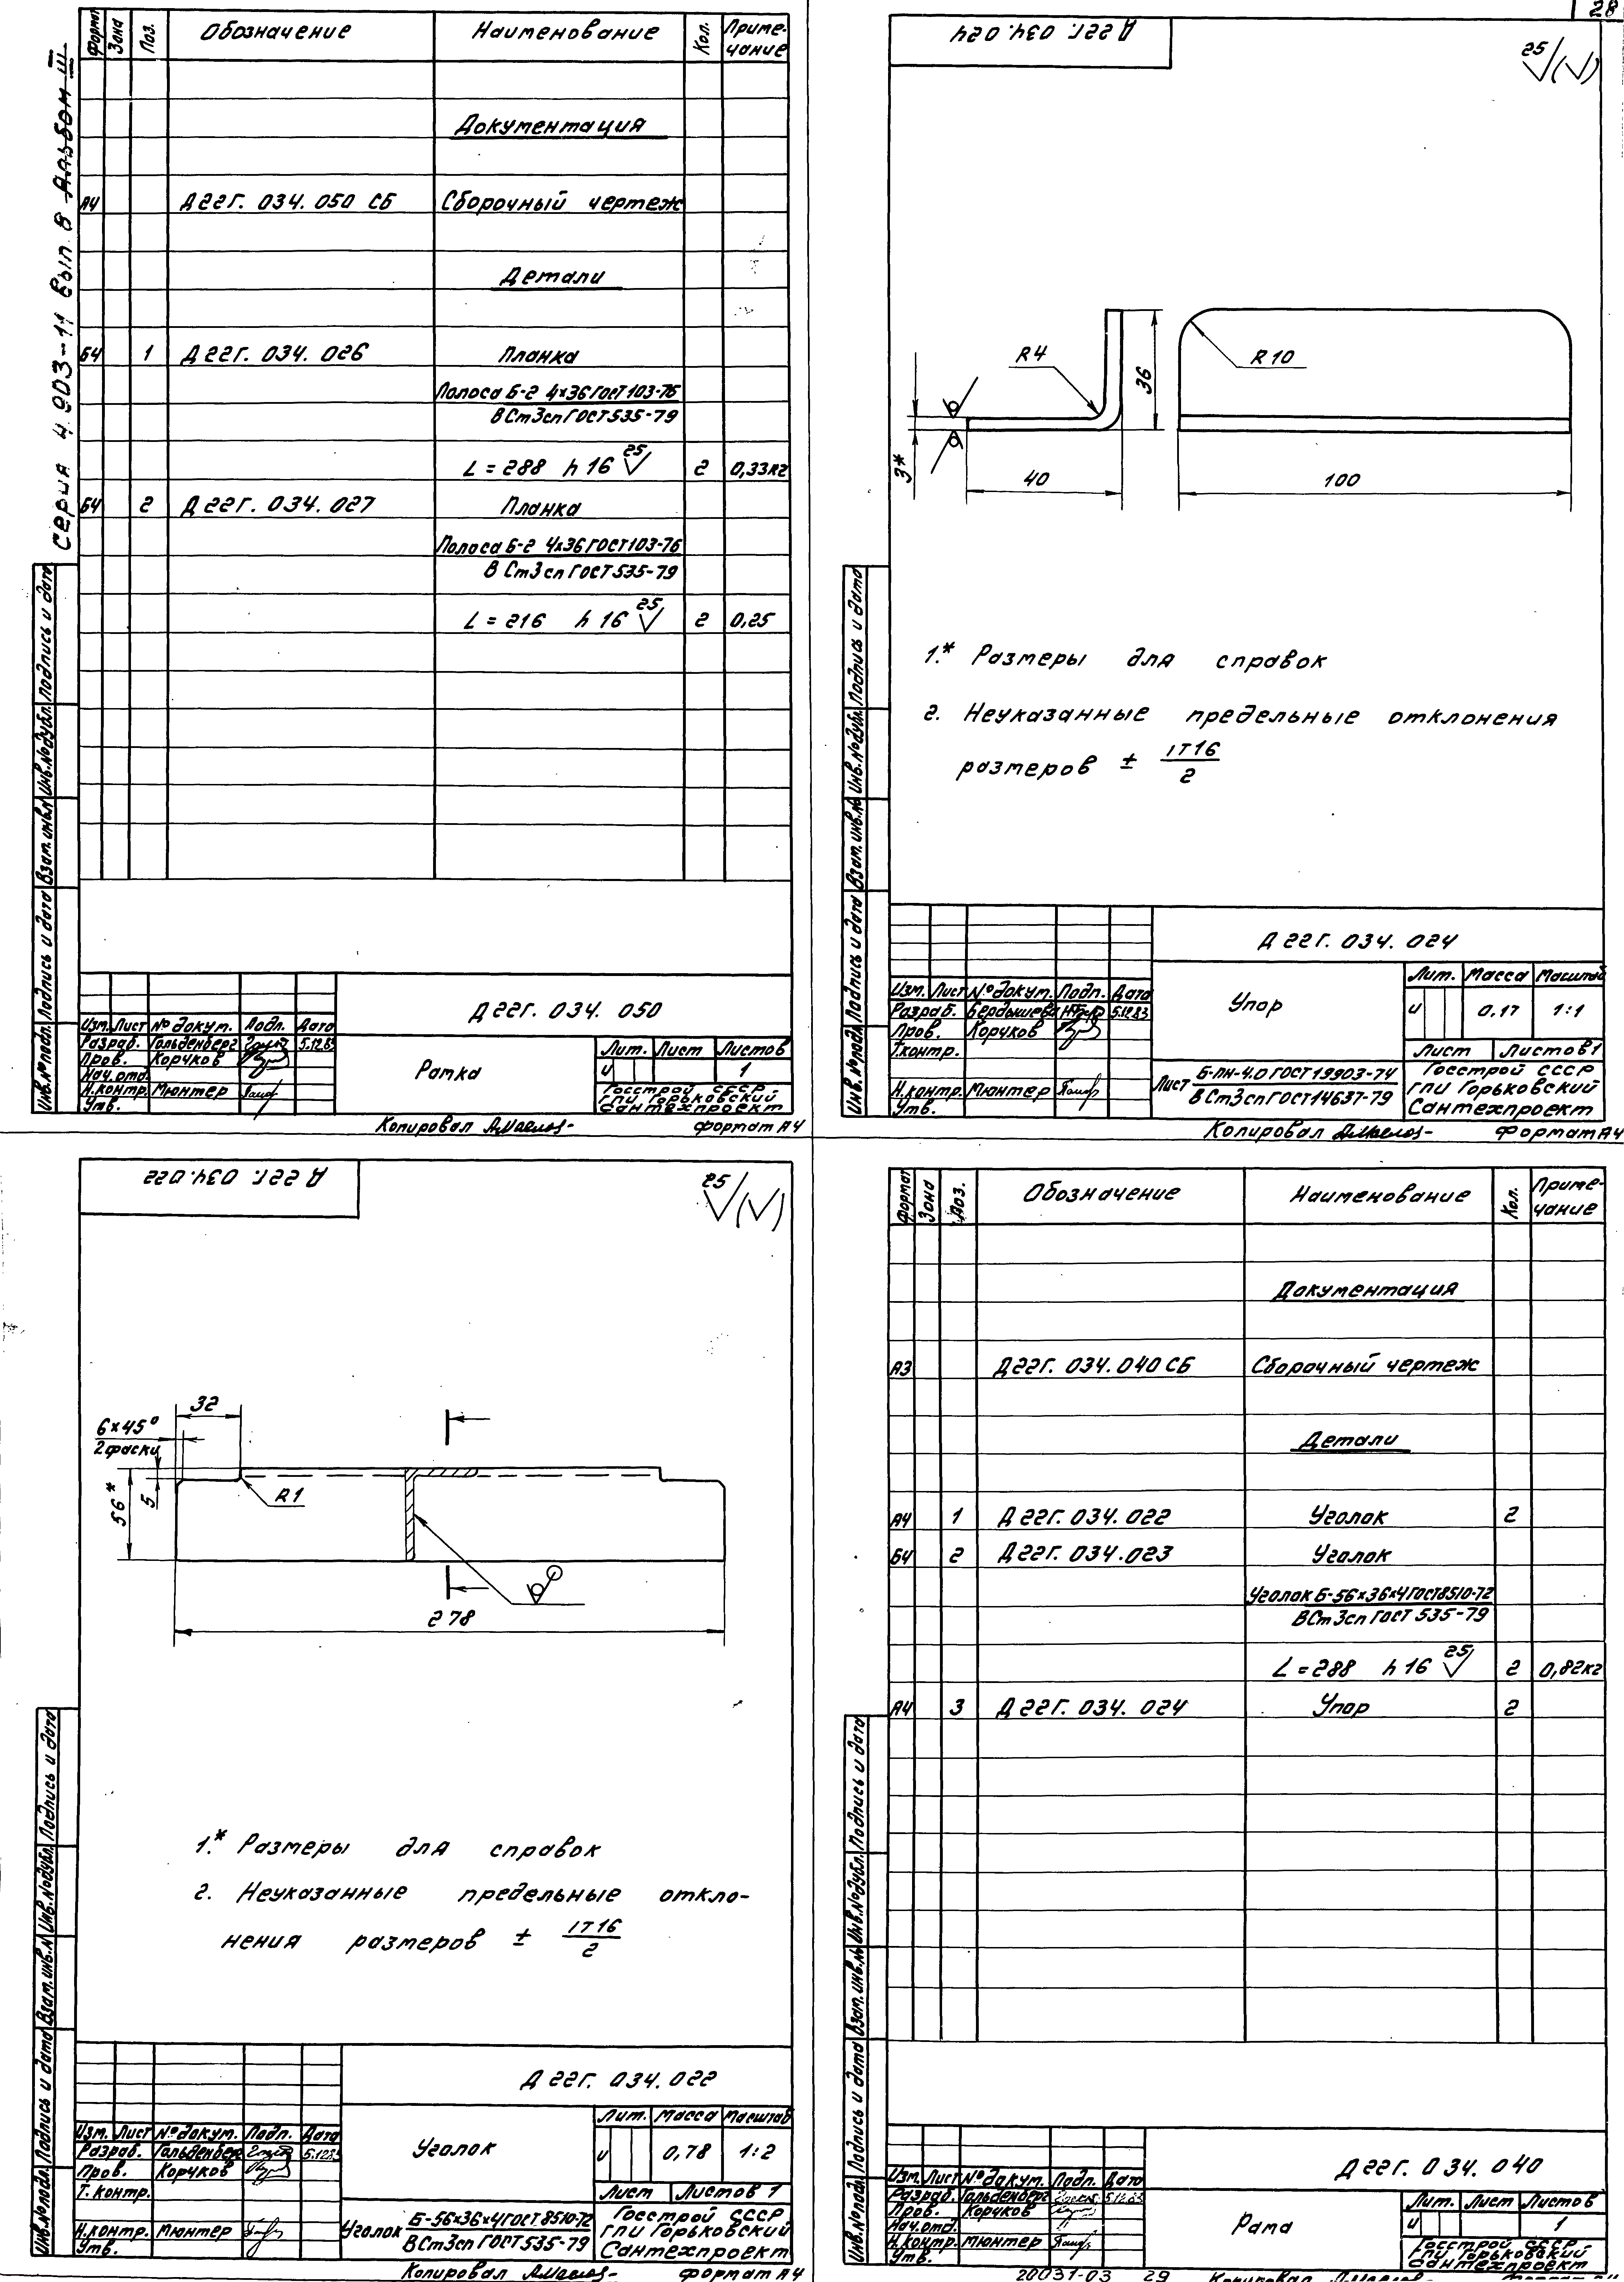 28
Серия 4.903-11 Вып. 8 Альбом III
Формат Зона Поз. Обозначение Наименование Кол. Приме-
чание
Документация
А4 Д22Г. 034. 050 СБ Сборочный чертеж
Детали
Б4 1 Д22Г. 034. 026 Планка
Полоса Б-2 4×36 ГОСТ 103-76
ВСт3сп ГОСТ 535-79
L = 288 h16 25 2 0,33кг
Б4 2 Д22Г. 034. 027 Планка
Полоса Б-2 4×36 ГОСТ 103-76
ВСт3сп ГОСТ 535-79
L = 216 h16 25 2 0,25
Инв.№подл. Подпись и дата Взам.инв.№ Инв.№дубл. Подпись и дата
Д22Г. 034. 050
Изм. Лист № докум. Подп. Дата
Разраб. Гольденберг 5.12.83
Пров. Корчков
Нач.отд.
Н.контр. Мюнтер
Утв.
Рамка
Лит. Лист Листов
И 1
Госстрой СССР
ГПИ Горьковский
Сантехпроект
Копировал Формат А4
Д22Г. 034. 024
25
R4
36
R10
3*
40
100
1.* Размеры для справок
2. Неуказанные предельные отклонения
размеров ± IT16/2
Инв.№подл. Подпись и дата Взам.инв.№ Инв.№дубл. Подпись и дата
Д22Г. 034. 024
Изм. Лист № докум. Подп. Дата
Разраб. Бердышева 5.12.83
Пров. Корчков
Т.контр.
Н.контр. Мюнтер
Утв.
Упор
Лит. Масса Масштаб
И 0,17 1:1
Лист Листов 1
Лист Б-ПН-4.0 ГОСТ 19903-74
ВСт3сп ГОСТ 14637-79
Госстрой СССР
ГПИ Горьковский
Сантехпроект
Копировал Формат А4
Д22Г. 034. 022
25
32
6×45°
2 фаски
56*
5
R1
278
1.* Размеры для справок
2. Неуказанные предельные откло-
нения размеров ± IT16/2
Инв.№подл. Подпись и дата Взам.инв.№ Инв.№дубл. Подпись и дата
Д22Г. 034. 022
Изм. Лист № докум. Подп. Дата
Разраб. Гольденберг 5.12.83
Пров. Корчков
Т.контр.
Н.контр. Мюнтер
Утв.
Уголок
Лит. Масса Масштаб
И 0,78 1:2
Лист Листов 1
Уголок Б-56×36×4 ГОСТ 8510-72
ВСт3сп ГОСТ 535-79
Госстрой СССР
ГПИ Горьковский
Сантехпроект
Копировал Формат А4
Формат Зона Поз. Обозначение Наименование Кол. Приме-
чание
Документация
А3 Д22Г. 034. 040 СБ Сборочный чертеж
Детали
А4 1 Д22Г. 034. 022 Уголок 2
Б4 2 Д22Г. 034. 023 Уголок
Уголок Б-56×36×4 ГОСТ 8510-72
ВСт3сп ГОСТ 535-79
L = 288 h16 25 2 0,82кг
А4 3 Д22Г. 034. 024 Упор 2
Инв.№подл. Подпись и дата Взам.инв.№ Инв.№дубл. Подпись и дата
Д22Г. 034. 040
Изм. Лист № докум. Подп. Дата
Разраб. Гольденберг 5.12.83
Пров. Корчков
Нач.отд.
Н.контр. Мюнтер
Утв.
Рама
Лит. Лист Листов
И 1
Госстрой СССР
ГПИ Горьковский
Сантехпроект
20031-03 29 Копировал